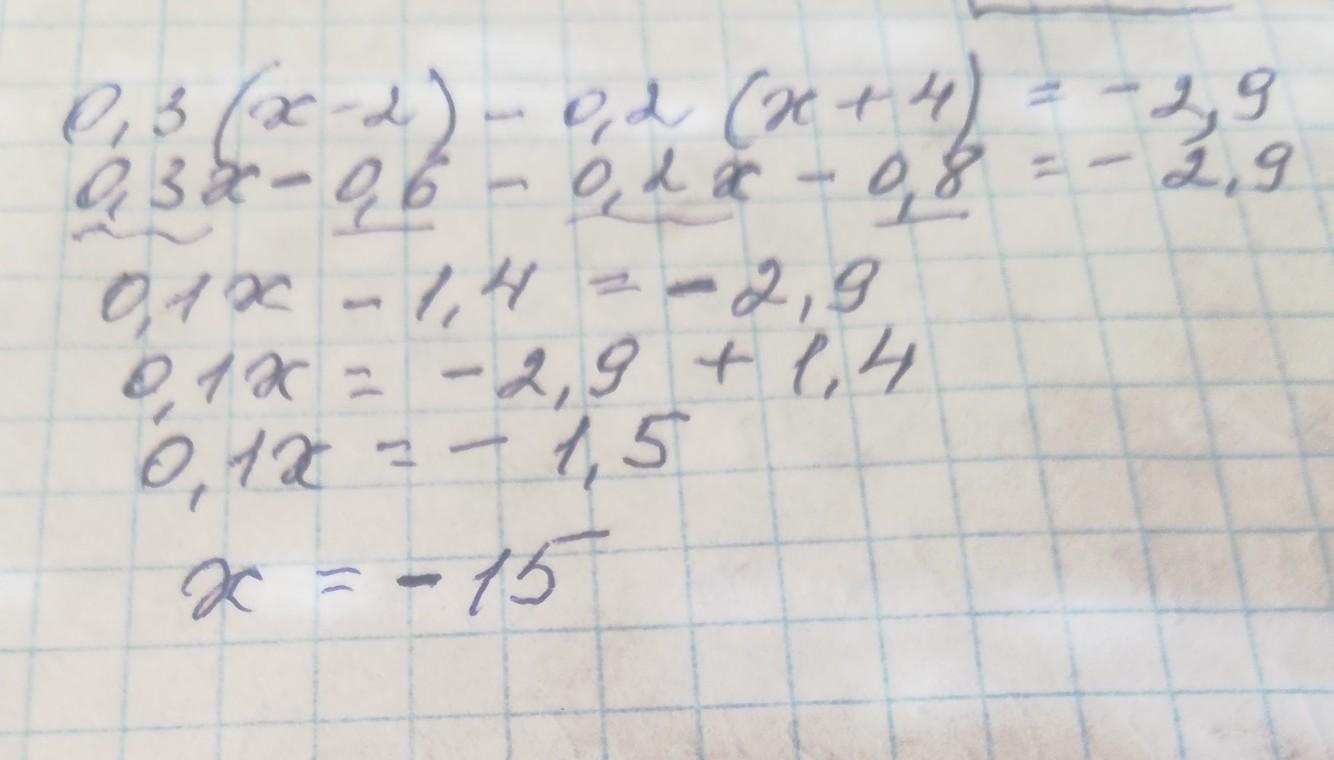 0,3(x-2) - 0,2(x+4) = -2,9
0,3x - 0,6 - 0,2x - 0,8 = -2,9
0,1x - 1,4 = -2,9
0,1x = -2,9 + 1,4
0,1x = -1,5
x = -15